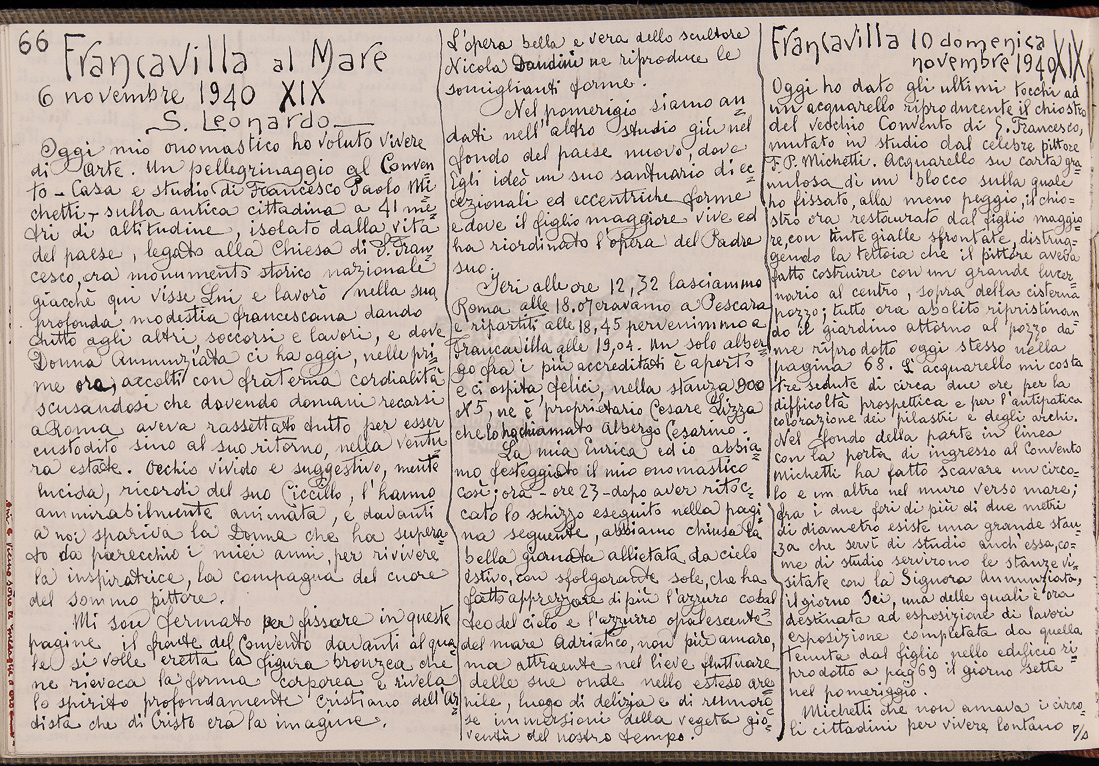 66
Francavilla al Mare
6 novembre 1940 XIX
S. Leonardo
Oggi mio onomastico ho voluto vivere
di Arte. Un pellegrinaggio al Conven=
to - Casa e studio di Francesco Paolo Mi=
chetti - sulla antica cittadina a 41 me=
tri di altitudine, isolato dalla vita
del paese, legato alla Chiesa di S. Fran=
cesco, ora monumento storico nazionale
giacchè qui visse Lui e lavorò nella sua
profonda modestia francescana dando
tutto agli altri soccorsi e lavori, e dove
Donna Annunziata ci ha oggi, nelle pri=
me ore, accolti con fraterna cordialità
scusandosi che dovendo domani recarsi
a Roma aveva rassettato tutto per esser
custodito sino al suo ritorno, nella ventu=
ra estate. Occhio vivido e suggestivo, mente
lucida, ricordi del suo Ciccillo, l'hanno
ammirabilmente animata, e davanti
a noi spariva la Donna che ha supera=
to da parecchio i miei anni, per rivivere
la inspiratrice, la compagna del cuore
del sommo pittore.
Mi son fermato per fissare in queste
pagine il fronte del Convento davanti al qua=
le si volle eretta la figura bronzea che
ne rievoca la forma corporea e rivela
lo spirito profondamente cristiano dell'Ar=
tista che di Cristo era la imagine.
L'opera bella e vera dello scultore
Nicola ne riproduce le
somiglianti forme.
Nel pomerigio siamo an=
dati nell'altro studio giù nel
fondo del paese nuovo, dove
Egli ideò un suo santuario di ec=
cezionali ed eccentriche forme
e dove il figlio maggiore vive ed
ha riordinato l'opera del Padre
suo.
Ieri alle ore 12,32 lasciammo
Roma alle 18.07 eravamo a Pescara
e ripartiti alle 18,45 pervenimmo a
Francavilla alle 19,04. Un solo alber=
go fra i più accreditati è aperto
e ci ospita, felici, nella stanza
N 5, ne è proprietario Cesare Lizza
che lo ha chiamato Albergo Cesarino
La mia Enrica ed io abbia=
mo festeggiato il mio onomastico
così; ora - ore 23 - dopo aver ritoc=
cato lo schizzo eseguito nella pagi=
na seguente, abbiamo chiusa la
bella giornata allietata da cielo
estivo, con sfolgorante sole, che ha
fatto apprezzare di più l'azzuro cobal
teo del cielo e l'azzurro opalescente
del mare Adriatico, non più amaro,
ma attraente nel lieve fluttuare
delle sue onde nello esteso are=
nile, luogo di delizia e di rumoro=
se immersioni della vegeta gio=
ventù del nostro tempo.
Francavilla 10 domenica
novembre 1940 XIX
Oggi ho dato gli ultimi tocchi ad
un acquarello riproducente il chiostro
del vecchio Convento di S. Francesco,
mutato in studio dal celebre pittore
F. P. Michetti. Acquarello su carta gra=
nulosa di un blocco sulla quale
ho fissato, alla meno peggio, il chio=
stro ora restaurato dal figlio maggio=
re, con tinte gialle sfrontate, distrug=
gendo la tettoia che il pittore aveva
fatto costruire con un grande lucer=
nario al centro, sopra della cisterna
pozzo; tutto ora abolito ripristinan
do il giardino attorno al pozzo da
me riprodotto oggi stesso nella
pagina 68. L'acquarello mi costa
tre sedute di circa due ore per la
difficoltà prospettica e per l'antipatica
colorazione dei pilastri e degli archi.
Nel fondo della parte in linea
con la porta di ingresso al Convento
Michetti ha fatto scavare un circo=
lo e un altro nel muro verso mare;
fra i due fori di più di due metri
di diametro esiste una grande stan
za che servì di studio anch'essa, co=
me di studio servirono le stanze vi=
sitate con la Signora Annunziata,
il giorno Sei, una delle quali è ora
destinata ad esposizione di lavori
esposizione completata da quella
tenuta dal figlio nello edificio ri=
prodotto a pag 69 il giorno sette
nel pomeriggio.
Michetti che non amava i circo=
li cittadini per vivere lontano